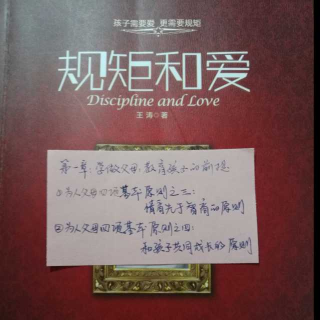 孩子需要爱 更需要规矩
规矩和爱
Discipline and Love
王涛◎著
第一章:学做父母,教育孩子的前提
①为人父母四项基本原则之三:
情商先于智商的原则
②为人父母四项基本原则之四:
和孩子共同成长的原则